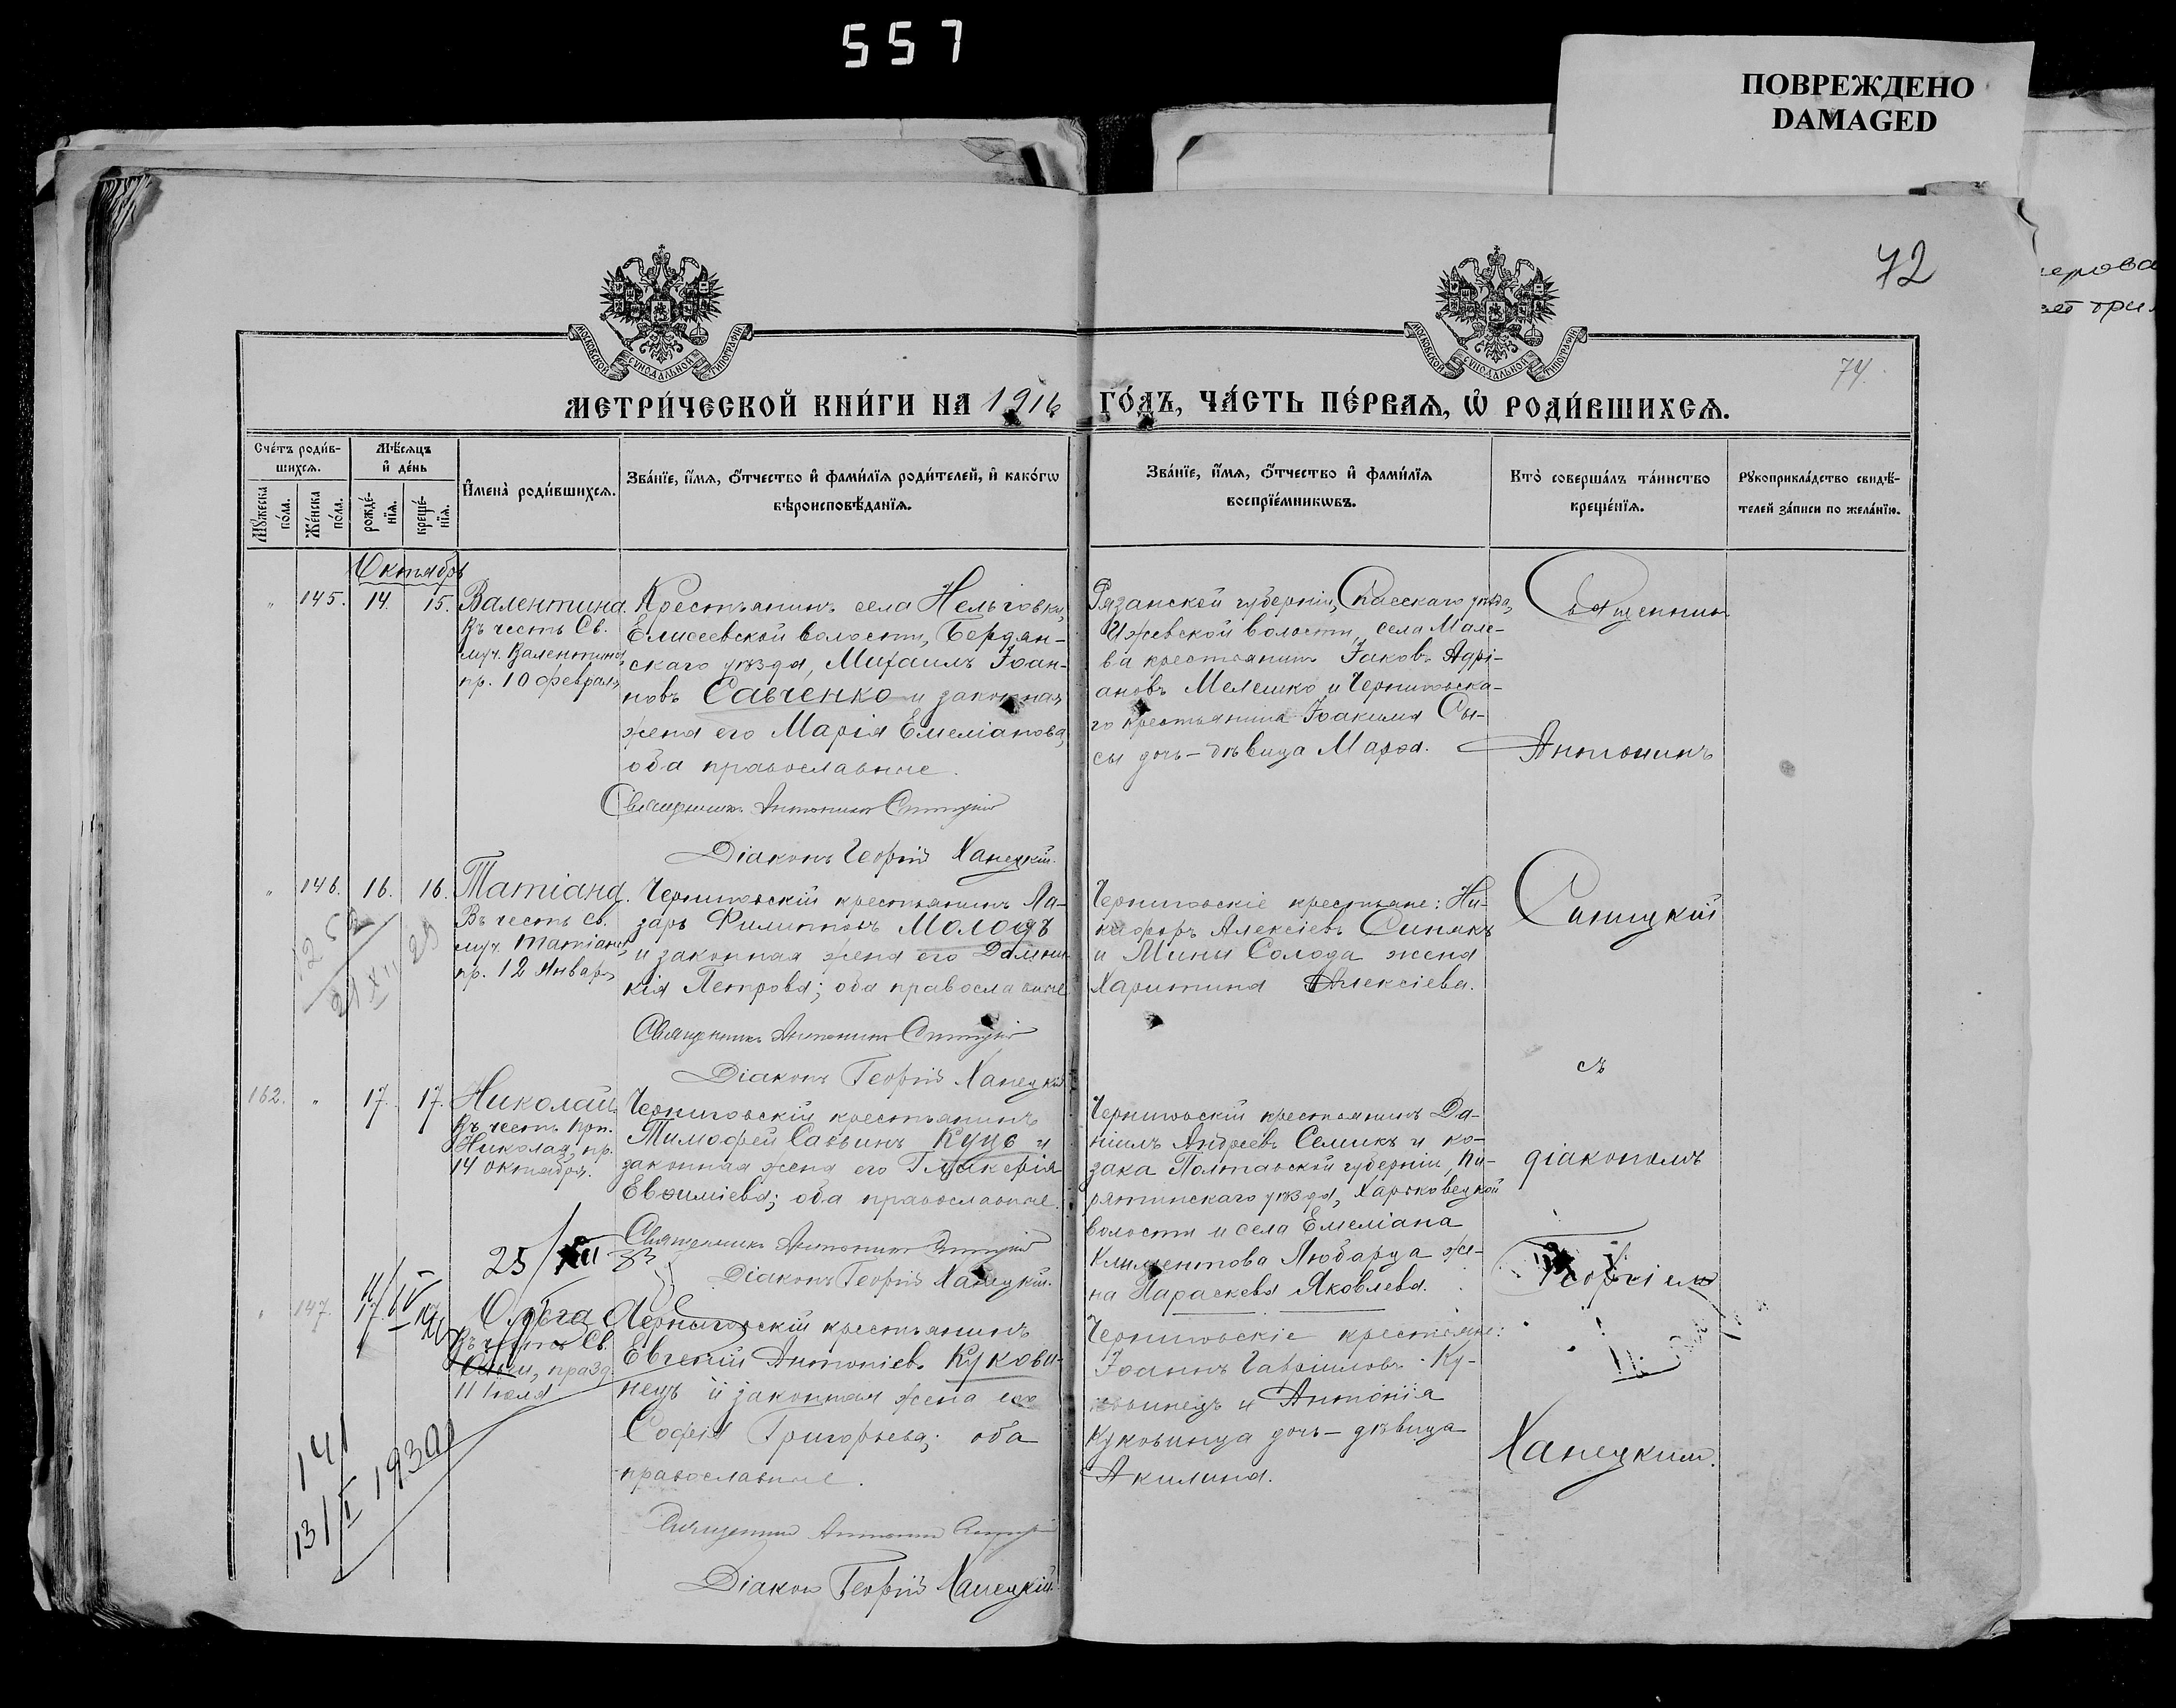 557
ПОВРЕЖДЕНО
DAMAGED
72
74.
МОСКОВСКОЙ СѴНОДАЛЬНОЙ ТИПОГРАФІИ
МОСКОВСКОЙ СѴНОДАЛЬНОЙ ТИПОГРАФІИ
МЕТРИ́ЧЕСКОЙ КНИ́ГИ НА 1916 ГО́ДЪ, ЧА́СТЬ ПЕ́РВАЯ, Ѡ РОДИ́ВШИХСЯ.
Сче́тъ роди́в-
шихся.
Мѣ́сяцъ
и де́нь
Му́жеска по́ла.
Же́нска по́ла.
рожде́-
нїя.
креще́-
нїя.
Имена̀ роди́вшихся.
Зва́нїе, и́мя, о́тчество и фами́лїя роди́телей, и како́гѡ
вѣроисповѣ́данїя.
Зва́нїе, и́мя, о́тчество и фами́лїя
воспрїе́мникѡвъ.
Кто̀ соверша́лъ та́инство
креще́нїя.
Рукоприкла́дство свидѣ́-
телей за́писи по жела́нїю.
Октябрь
" 145. 14. 15. Валентина.
Въ честь Св.
муч. Валентины,
пр. 10 февраля
Крестьянинъ села Нельговки,
Елисеевской волости, Бердян-
скаго уѣзда, Михаилъ Іоан-
новъ Савченко и законная
жена его Марія Емеліанова,
оба православные.
Священникъ Антонинъ Синицкій
Діаконъ Георгій Ханецкій.
Рязанской губерніи, Спасскаго уѣзда,
Ижевской волости, села Мале-
ва крестьянинъ Іаковъ Адрі-
ановъ Мелешко и Черниговска-
го крестьянина Іоакима Сы-
сы дочь – дѣвица Марѳа.
Священник
Антонинъ
" 146. 16. 16. Татіана.
Въ честь Св.
муч. Татіаны,
пр. 12 Января
Черниговскій крестьянинъ Ла-
зарь Филиповъ Молодъ
и законная жена его Домни-
кія Петрова; оба православные
Священникъ Антонинъ Синицкій
Діаконъ Георгій Ханецкій
Черниговскіе крестьяне: Ни-
кифоръ Алексіевъ Синякъ
и Мины Солода жена
Харитина Алексіева.
Синицкій
съ
162. " 17. 17. Николай.
Въ честь Прп.
Николая, пр.
14 октября.
Черниговскій крестьянинъ
Тимофей Саввинъ Куцъ и
законная жена его Гликерія
Евѳиміева; оба православные.
Священникъ Антонинъ Синицкій
Діаконъ Георгій Ханецкій.
Черниговскій крестьянинъ Да-
ніилъ Андреевъ Семикъ и ко-
зака Полтавской губерніи, Пи-
рятинскаго уѣзда, Харьковецкой
волости и села Емеліана
Климентова Любарца же-
на Параскева Яковлева.
діакономъ
Георгіемъ
25/XII
" 147. 17. Ольга
Въ честь Св.
Ольги, празд.
11 Іюля
Черниговскій крестьянинъ
Евгеній Антоніевъ Кукови-
нецъ и законная жена его
Софія Григорьева; оба
православные.
Діакон Георгій Ханецкій.
Черниговскіе крестьяне:
Іоаннъ Гавріиловъ Ку-
ковинецъ и Антонія
Куковинца дочь – дѣвица
Акилина.
Ханецкимъ.
141
13/I 1930